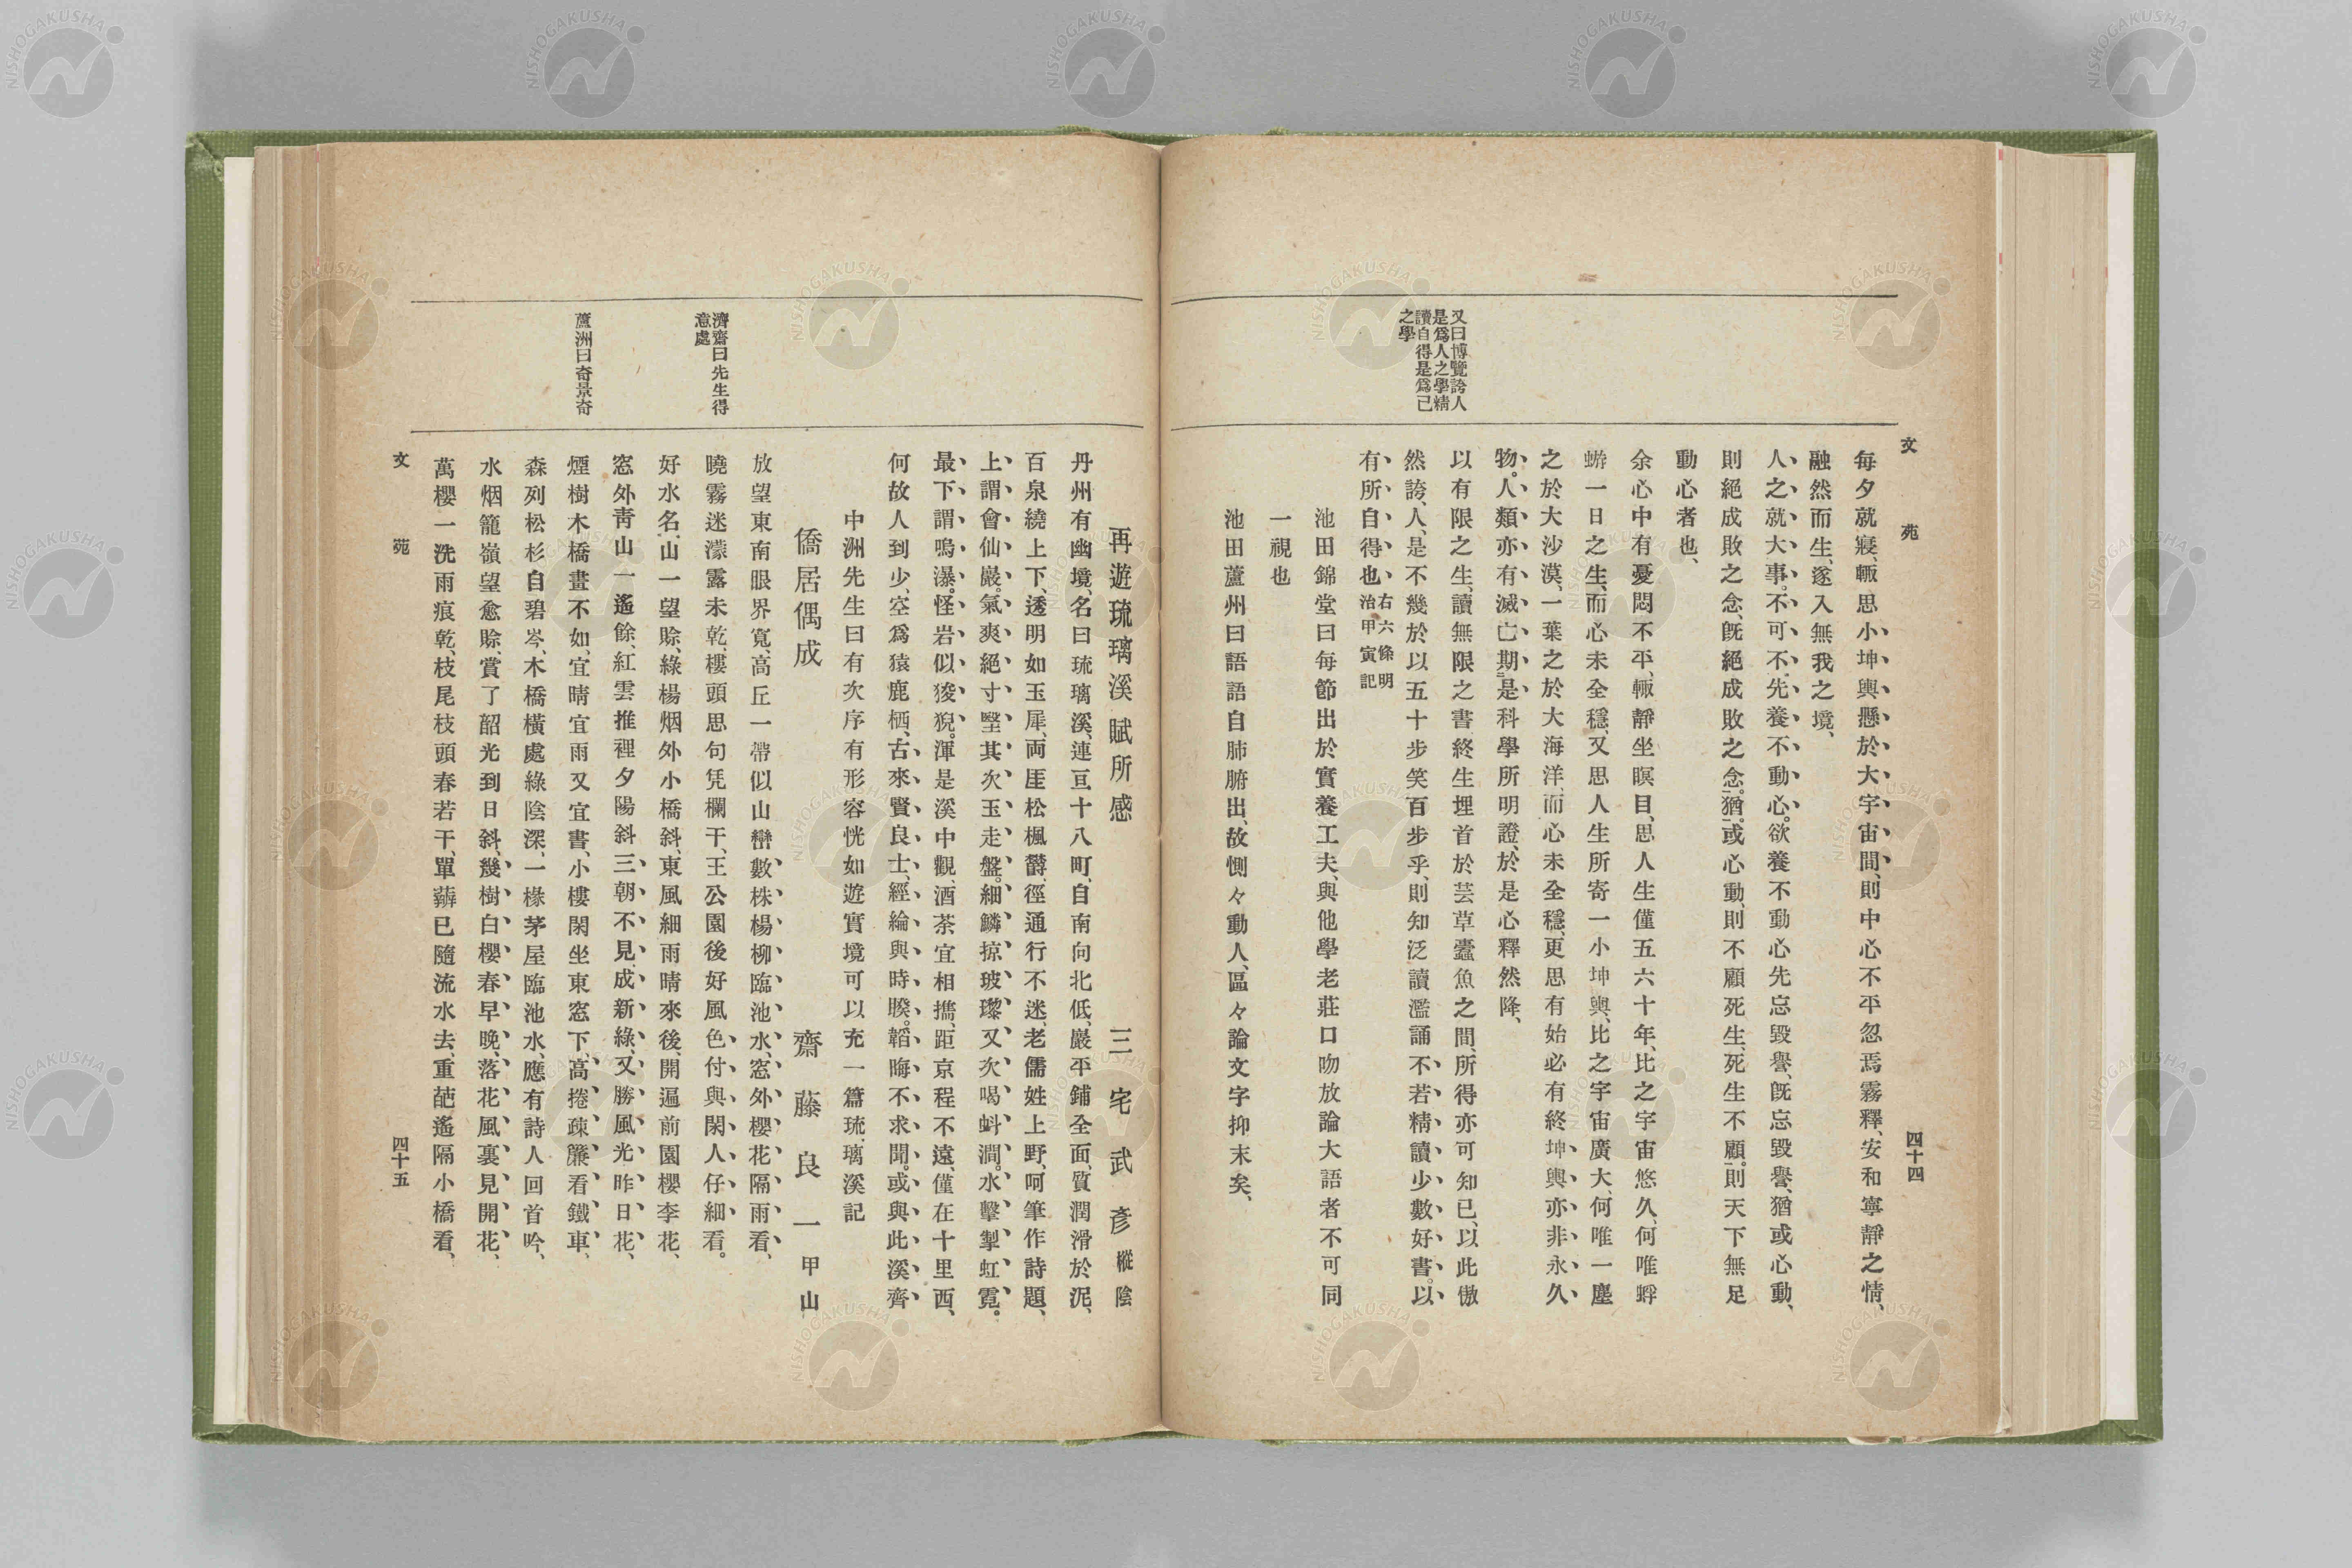 文　苑
四十四
又曰博覽誇人
是爲人之學精
讀自得是爲己
之學
每夕就寢、輙思小坤輿懸於大宇宙間、則中心不平忽焉霧釋、安和寧靜之情、
融然而生、遂入無我之境、
人之就大事。不可不先養不動心。欲養不動心先忘毀譽、既忘毀譽、猶或心動、
則絕成敗之念、既絕成敗之念。猶或心動、則不顧死生、死生不顧。則天下無足
動心者也、
余心中有憂悶不平、輙靜坐瞑目、思人生僅五六十年、比之宇宙悠久、何唯蜉
蝣一日之生、而心未全穩、又思人生所寄一小坤輿、比之宇宙廣大、何唯一塵
之於大沙漠、一葉之於大海洋、而心未全穩、更思有始必有終坤輿亦非永久
物。人類亦有滅亡期。是科學所明證、於是心釋然降、
以有限之生、讀無限之書、終生埋首於芸草蠹魚之間、所得亦可知已、以此傲
然誇人、是不幾於以五十步笑百步乎、則知泛讀濫誦不若精讀少數好書。以
有所自得也 右六條明治甲寅記
池田錦堂曰每節出於實養工夫、與他學老莊口吻放論大語者不可同
一視也
池田蘆州曰語語自肺腑出、故惻々動人、區々論文字抑末矣、
再遊琉璃溪賦所感　三宅武彥 樅陰
丹州有幽境、名曰琉璃溪、連亘十八町、自南向北低、巖平鋪全面、質潤滑於泥、
百泉繞上下、透明如玉犀、両厓松楓欝、徑通行不迷、老儒姓上野、呵筆作詩題、
上謂會仙巖。氣爽絕寸堅其次玉走盤。細鱗掠玻瓈又次喝蚪澗。水擊掣虹霓。
最下謂鳴瀑。怪岩似狻猊。渾是溪中觀、酒茶宜相攜、距京程不遠、僅在十里西、
何故人到少、空爲猿鹿栖、古來賢良士、經綸與時睽。韜晦不求聞。或與此溪齊
中洲先生曰有次序有形容恍如遊實境可以充一篇琉璃溪記
僑居偶成　齋藤良一 甲山
濟齋曰先生得
意處
放望東南眼界寬、高丘一帶似山巒數株楊柳臨池水、窓外櫻花隔雨看、
曉霧迷濛露未乾、樓頭思句凭欄干、王公園後好風色付與閑人仔細看。
好水名山一望賒、綠楊烟外小橋斜、東風細雨晴來後、開遍前園櫻李花、
窓外靑山一遙餘、紅雲推裡夕陽斜三朝不見成新綠、又勝風光昨日花、
蘆洲曰奇景奇
煙樹木橋畫不如、宜晴宜雨又宜書、小樓閑坐東窓下、高捲疎簾看鐵車、
森列松杉自碧岑、木橋橫處綠陰深、一椽茅屋臨池水、應有詩人回首吟、
水烟籠嶺望愈賒、賞了韶光到日斜、幾樹白櫻春早晚、落花風裏見開花、
萬櫻一洗雨痕乾、枝尾枝頭春若干、單瓣已隨流水去、重葩遙隔小橋看、
文　苑
四十五
NISHOGAKUSHA